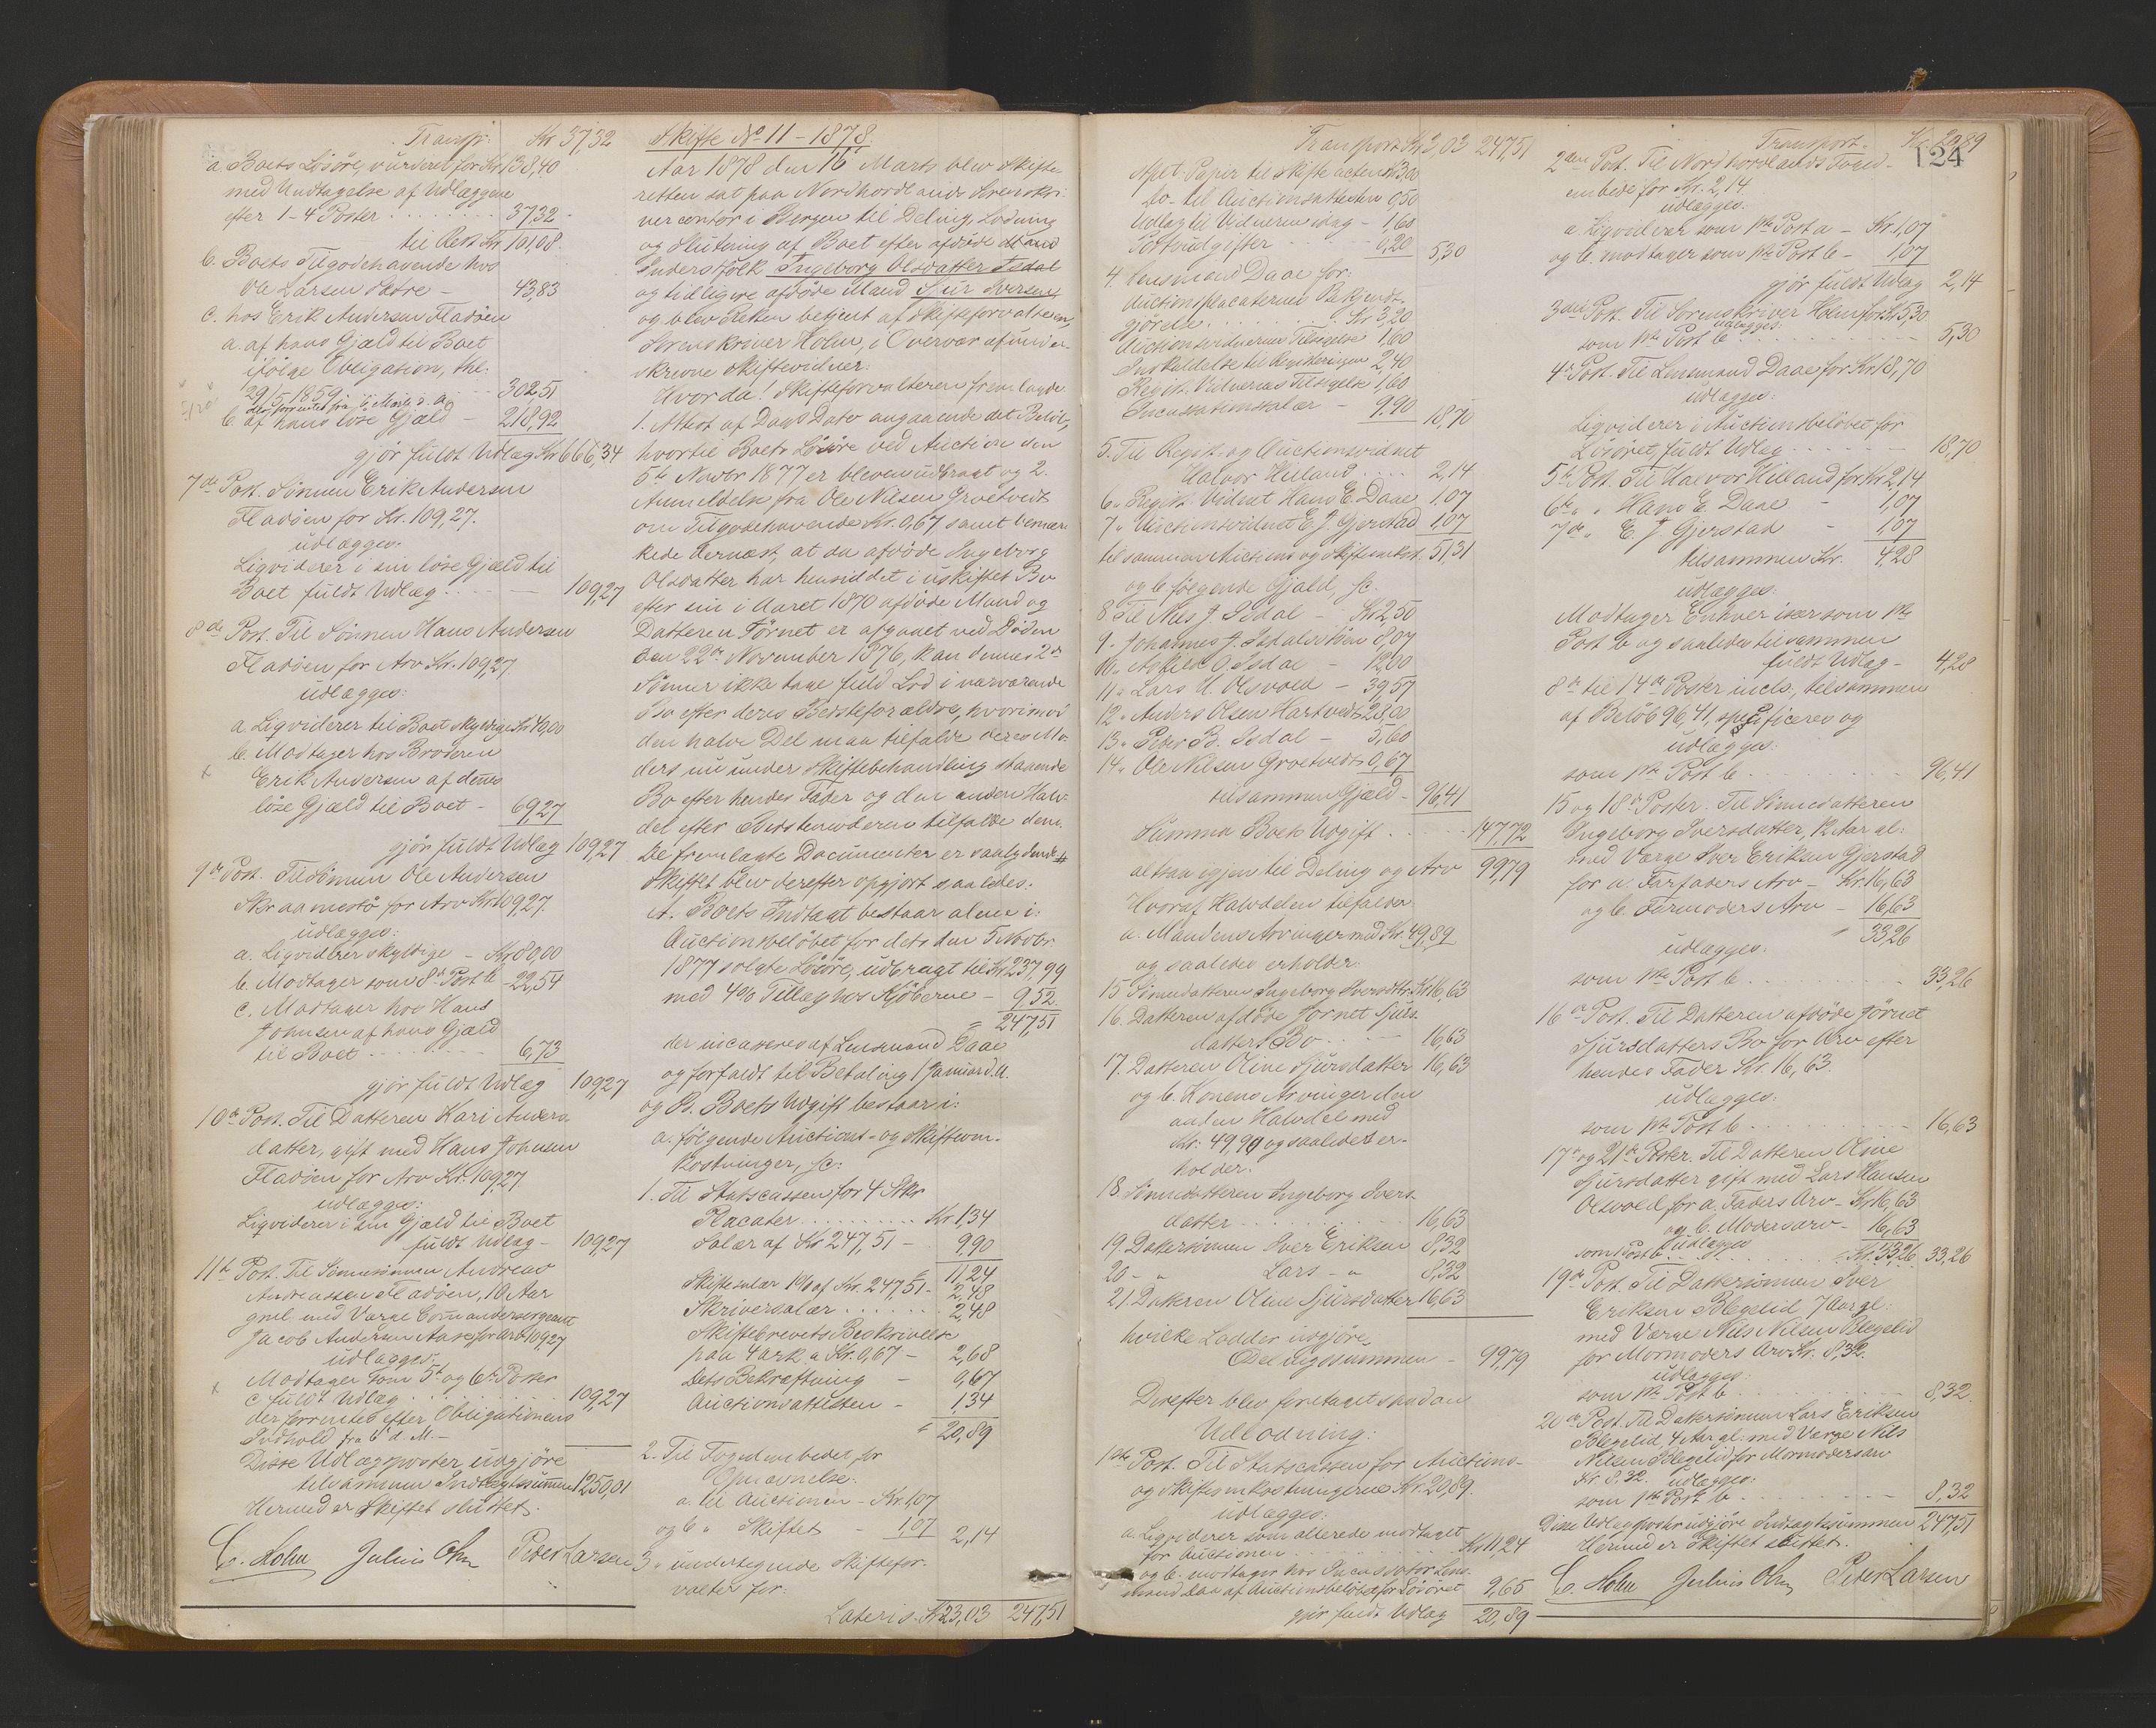 Transp: Kr 37,32
a. Boets Lösöre, vurderet for Kr 138,40
med Undtagelse af Udlæggene
efter 1-4 Poster . . . . 37,32
til Rest Kr. 101,08.
b. Boets Tilgodehavende hos
Ole Larsen - 43,83
c. hos Erik Andersen Fladöen
a. af hans Gjæld til Boet
ifölge Obligation, thl:
29/5 1859 - 302,51
b. af hans löse Gjæld - 218,92
gjör fuldt Udlæg Kr 666,34
7de Post. Sönnen Erik Andersen
Fladöen for Kr. 109,27.
udlægges:
Liqviderer i sin löse Gjæld til
Boet fuldt Udlæg . . . 109,27
8de Post. Til Sönnen Hans Andersen
Fladöen for Arv Kr. 109,27
udlægges:
a Liqviderer til Boet skyldige Kr 40,00
b. Modtager hos Broderen
Erik Andersen af dennes
löse Gjæld til Boet - 69,27
gjör fuldt Udlæg 109,27
9de Post. Til Sönnen Ole Andersen
for Arv Kr 109,27.
udlægges:
a. Liqviderer skyldige - Kr 80,00
b. Modtager som 8de Post b - 22,54
c. Modtager hos Hans
Johnsen af hans Gjæld
til Boet . . . . 6,73
gjör fuldt Udlæg 109,27
10de Post. Til Datteren Kari Anders-
datter, gift med Hans Johnsen
Fladöen for Arv Kr. 109,27
udlægges:
Liqviderer i sin Gjæld til Boet
fuldt Udlæg - 109,27
11te Post. Til Sönnesönnen Andreas
Andreassen Fladöen, 10 Aar
gml. med Værge Comandersergeant
Jacob Andersen for Arv 109,27
udlægges:
Modtager som 5te og 6te Poster
c fuldt Udlæg . . . 109,27
der forrentes efter Obligationens
Indhold fra 6 d. M.-
Disse Udlægsposter udgjöre
tilsammen Indtægtssummen 1250,01
Hermed er Skiftet sluttet.
C. Holm Julius Olsn Peder Larsen
Skifte No 11 - 1878.
Aar 1878 den 16 Marts blev Skifte-
retten sat paa Nordhordlands Sorenskri-
vercontor i Bergen til Deling, Lodning
og Slutning af Boet efter afdöde
Inderstfolk Ingeborg Olsdatter Isdal
og tidligere afdöde Mand Sjur Iversen,
og blev Retten betjent af Skifteforvalteren,
Sorenskriver Holm, i Overvær af under-
skrevne Skiftevidner:
Hvorda! Skifteforvalteren fremlagde
1. Attest af Dags Dato angaaende det Belöb,
hvortil Boets Lösöre ved Auction den
5te Novbr 1877 er bleven udbragt og 2.
Anmeldelse fra Ole Nilsen Groetvedt
om Tilgodehavende Kr. 0,67 samt bemær-
kede dernæst, at da afdöde Ingeborg
Olsdatter har hensiddet i uskiftet Bo
efter sin i Aaret 1870 afdöde Mand og
Datteren Törnet er afgaaet ved Döden
den 22de November 1876, kan dennes 2de
Sönner ikke tage fuld Lod i nærværende
Bo efter deres Bedsteforældre, hvorimod
den halve Del maa tilfalde deres Mo-
ders nu under Skiftebehandling staaende
Bo efter hendes Fader og den anden Halv-
del efter Bedstemoderen tilfalde dem.
De fremlagte Documenter er saalydende #
Skiftet blev derefter opgjort saaledes:
A. Boets Indtægt bestaar alene i:
Auctionsbelöbet for dets den 5 Novbr.
1877 solgte Lösöre, udbragt til Kr 237,99
med 4% Tillæg hos Kjöberne - 9,52.
247,51
der incasseres af Lensmand Daae
og forfaldt til Betaling 1 Januar d.A.
og B. Boets Udgift bestaar i:
a. fölgende Auctions- og Skifteom-
kostninger, sc:
1. Til Statscassen for 4 Stkr
Placater . . . . Kr. 1,34
Salær af Kr 247,51 - 9,90
11,24
Skiftesalær 1% af Kr. 247,51 - 2,48
Skriversalær . . . . 2,48
Skiftebrevets Beskrivelse
paa 4 ark a Kr. 0,67 - 2,68
Dets Bekræftning - 0,67
Auctionsattesten - 1,34
20,89
2. Til Fogedembedet for
Opnævnelse:
a. til Auctionen - Kr. 1,07
og b " Skiftet - 1,07 2,14
3. undertegnede Skiftefor-
valter for:
Lateris. Kr 23,03 247,51
Transport Kr 23,03 247,51
Spet. Papir til Skifteacten Kr 3,00
do. til Auctionsattesten 0,50
Udlæg til Vidnerne idag - 1,60
Portoudgifter - 0,20 5,30
4. Lensmand Daae for:
Auctionsplacaternes Bekjendt-
gjörelse . . . . Kr 3,20
Auctionsvidnernes Tilsigelse 1,60
Indkaldelse til Registreringen 2,40
Regist. Vidnernes Tilsigelse 1,60
Incassationssalær - 9,90 18,70
5. Til Regist. og Auctionsvidnet
Halvor Hilland . . . . 2,14
6. Regist. Vidnet Hans E. Daae 1,07
7 " Auctionsvidnet E. J. Gjerstad 1,07
tilsammen Auctions og Skifteomkost. 51,31
og b. fölgende Gjæld, sc.
8. Til Nils J. Isdal - Kr. 2,50
9. Johannes J. Isdalstöen 8,07
10. Askild O. Isdal - 12,00
11 " Lars H. Olsvold - 39,57
12. Anders Olsen Hartvedt 28,00
13 " Peder B. Isdal - 5,60
14 " Ole Nilsen Groetvedt 0,67
tilsammen Gjæld - 96,41
Summa Boets Udgift . . . . 147,72
altsaa igjen til Deling og Arv 99,79
Hvoraf Halvdelen tilfalder
a. Mandens Arvinger med Kr. 49,89
og saaledes erholder:
15 Sönnedatteren Ingeborg Iversdtr. Kr 16,63
16. Datteren afdöde Törnet Sjurs-
datters Bo . . . . 16,63
17. Datteren Oline Sjursdatter 16,63
og b. Konens Arvinger den
anden Halvdel med
Kr: 49,90 og saaledes er-
holder:
18. Sönnedatteren Ingeborg Ivers-
datter . . . . 16,63
19. Dattersönnen Iver Eriksen 8,32
20 - " Lars - " 8,32
21. Datteren Oline Sjursdatter 16,63
hvilke Lodder udgjöre
Delingssummen - 99,79
Derefter blev foretaget saadan
Udlodning:
1ste Post. Til Statscassen for Auctions-
og Skifteomkostningerne Kr. 20,89.
udlægges:
a. Liqviderer som allerede modtaget
for Auctionen . . . . Kr 11,24
og b. modtager hos Incassator Lens-
mand Daae af Auctionsbelöbet for Lösöret 9,65
gjör fuldt Udlæg 20,89
Transport. Kr. 20,89
124
2den Post. Til Nordhordlands Foged-
embede for Kr. 2,14.
udlægges:
a Liqviderer som 1ste Post a - Kr. 1,07
og b. modtager som 1ste Post b - 1,07
gjör fuldt Udlæg 2,14
3die Post. Til Sorenskriver Holm for Kr 5,30
udlægges:
som 1ste Post b . . . . 5,30
4de Post. Til Lensmand Daae for Kr 18,70
udlægges:
Liqviderer i Auctionsbelöbet for
Lösöret, fuldt Udlæg . . . . 18,70
5te Post. Til Halvor Hilland for Kr 2,14
6te " " Hans E. Daae - 1,07
7de " E. J Gjerstad - 1,07
tilsammen Kr. 4,28
udlægges:
Modtager Enhver især som 1ste
Post b og saaledes tilsammen
fuldt Udlæg - 4,28
8de til 14de Poster incls., tilsammen
af Belöb 96,41, specificeres og
udlægges:
som 1ste Post b . . . . 96,41
15 og 18de Poster. Til Sönnedatteren
Ingeborg Iversdatter, 12 Aar gl:
med Værge Iver Eriksen Gjerstad
for a. Farfaders Arv - Kr. 16,63
og b. Farmoders Arv - 16,63
33,26
udlægges:
som 1ste Post b . . . . 33,26
16de Post. Til Datteren afdöde Törnet
Sjursdatters Bo for Arv efter
hendes Fader Kr. 16,63.
udlægges:
som 1ste Post b . . . . 16,63
17de og 21de Poster. Til Datteren Oline
Sjursdatter gift med Lars Hansen
Olsvold for a. Faders Arv - Kr 16,63
og b. Modersarv - 16,63
udlægges
som Post b . . . . Kr. 33,26 33,26
19de Post. Til Dattersönnen Iver
Eriksen Blegelid 7 Aar gl:
med Værge Nils Nilsen Blegelid
for Mormoders Arv Kr. 8,32.
udlægges:
som 1ste Post b . . . . 8,32.
20de Post. Til Dattersönnen Lars Eriksen
Blegelid, 4 Aar gl: med Værge Nils
Nilsen Blegelid for Mormodersarv
Kr. 8,32. udlægges:
som 1ste Post b . . . . 8,32
Disse Udlægsposter udgjöre Indtægtssummen 247,51
Hermed er Skiftet sluttet.
C. Holm Julius Olsn Peter Larsen